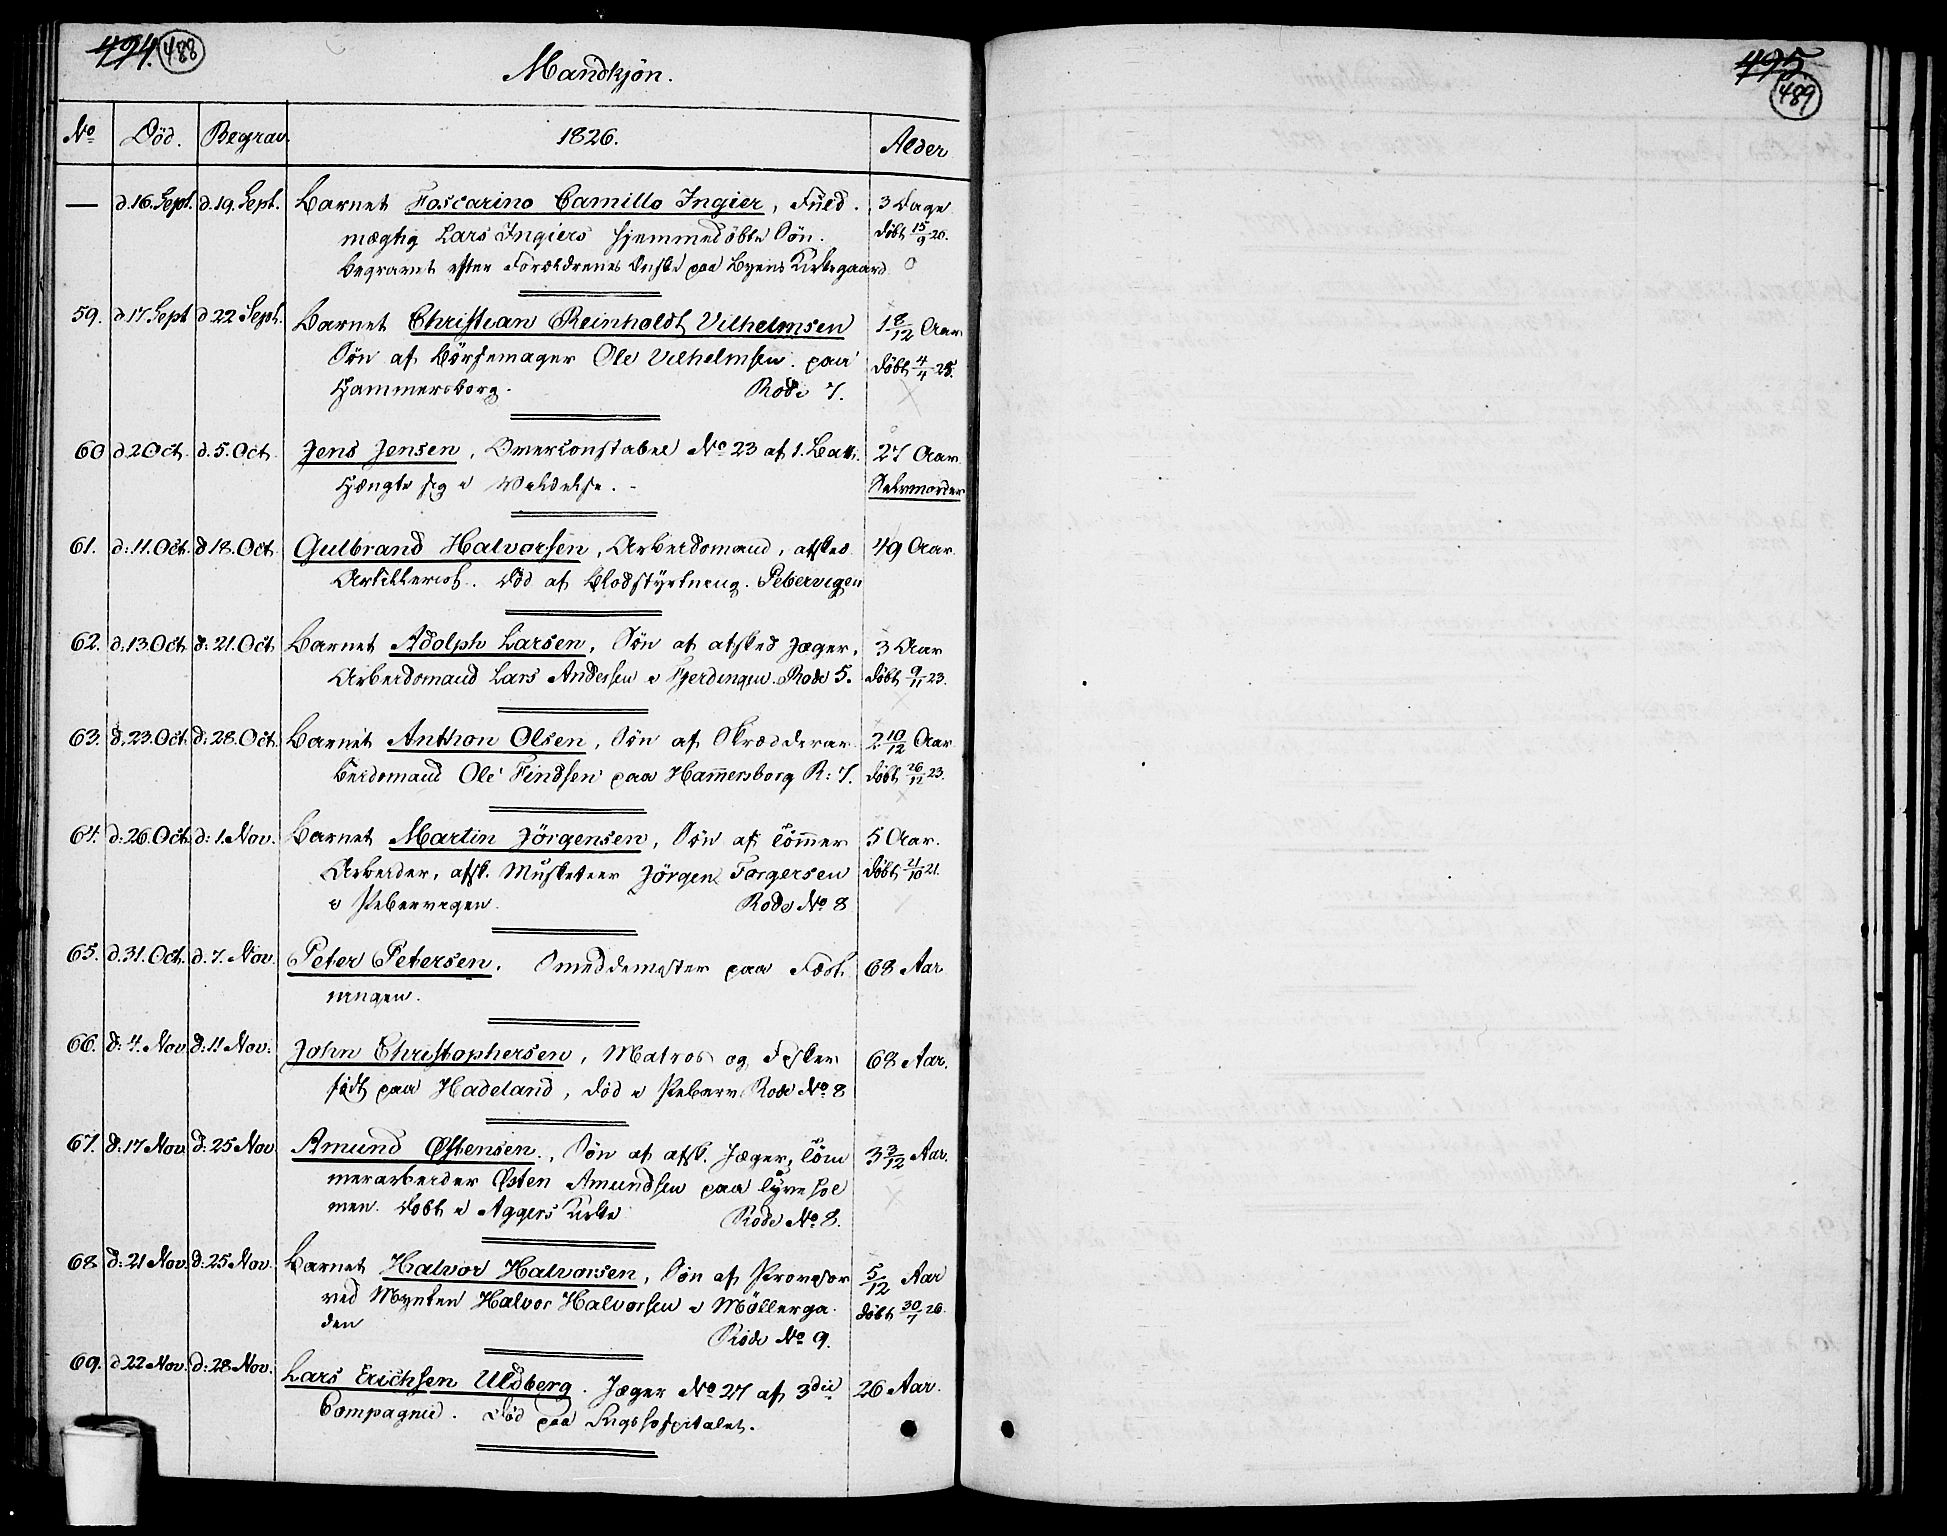 494. 488
Mandkjön.
No Död. Begrav. 1826. Alder
— d.16.Sept. d.19.Sept. Barnet Foscarino Camillo Ingier, Fuld- 3 Dage
mægtig Lars Ingiers hjemmedöbte Sön. döbt 15/9 26.
begravet efter Forældrenes Önske paa Byens Kirkegaard
59. d.17 Sept d.22 Sept. Barnet Christian Reinholdt Vilhelmsen 1 8/12 Aar
Sön af Börsemager Ole Vilhelmsen paa döbt 4/4 25.
Hammersborg. Rode 7.
60 d.2 Oct. d.5.Oct. Jens Jensen, Overconstabel No 23 af 1. Batt. 27 Aar
Hængte sig i Vildelse. Selvmorder
61. d:11.Oct. d.18.Oct. Gulbrand Halvorsen, Arbeidsmand, afsked. 49 Aar
Artillerist. död af Blodstyrtning. Pebervigen
62. d.13.Oct d:21.Oct Barnet Adolph Larsen, Sön af afsked Jæger, 3 Aar
Arbeidsmand Lars Andersen i Fjerdingen. Rode 5. döbt 9/11 23.
63. d.23.Oct. d:28.Oct. Barnet Anthon Olsen, Sön af Skrædderar- 2 10/12 Aar
beidsmand Ole Findsen paa Hammersborg R: 7. döbt 26/12 23.
64. d:26.Oct. d:1.Nov. Barnet Martin Jörgensen, Sön af Tömmer 5 Aar.
Arbeider, afsk. Musketeer Jörgen Torgersen döbt 21/10 21.
i Pebervigen. Rode No 8
65. d.31.Oct. d.7.Nov. Peter Petersen. Smeddemester paa Fæst- 68 Aar
ningen.
66. d:4.Nov. d:11 Nov: John Christophersen, Matros og Fisker 68 Aar.
födt paa Hadeland, död i Peberv. Rode No 8
67. d:17 Nov. d:25 Nov. Amund Østensen, Sön af afsk. Jæger, Töm 3 3/12 Aar.
merarbeider Østen Amundsen paa Tyvehol
men. Döbt i Aggers Kirke Rode No 8.
68 d:21 Nov. d:25 Nov. Barnet Halvor Halvorsen, Sön af 5/12 Aar
ved Mynten Halvor Halvorsen i Möllerga- döbt 30/7 26.
den Rode No 9.
69. d.22 Nov. d:28 Nov. Lars Erichsen Uldberg. Jæger No 27 af 3die 26 Aar.
Compagnie. Död paa Sygehospitalet.
495 489